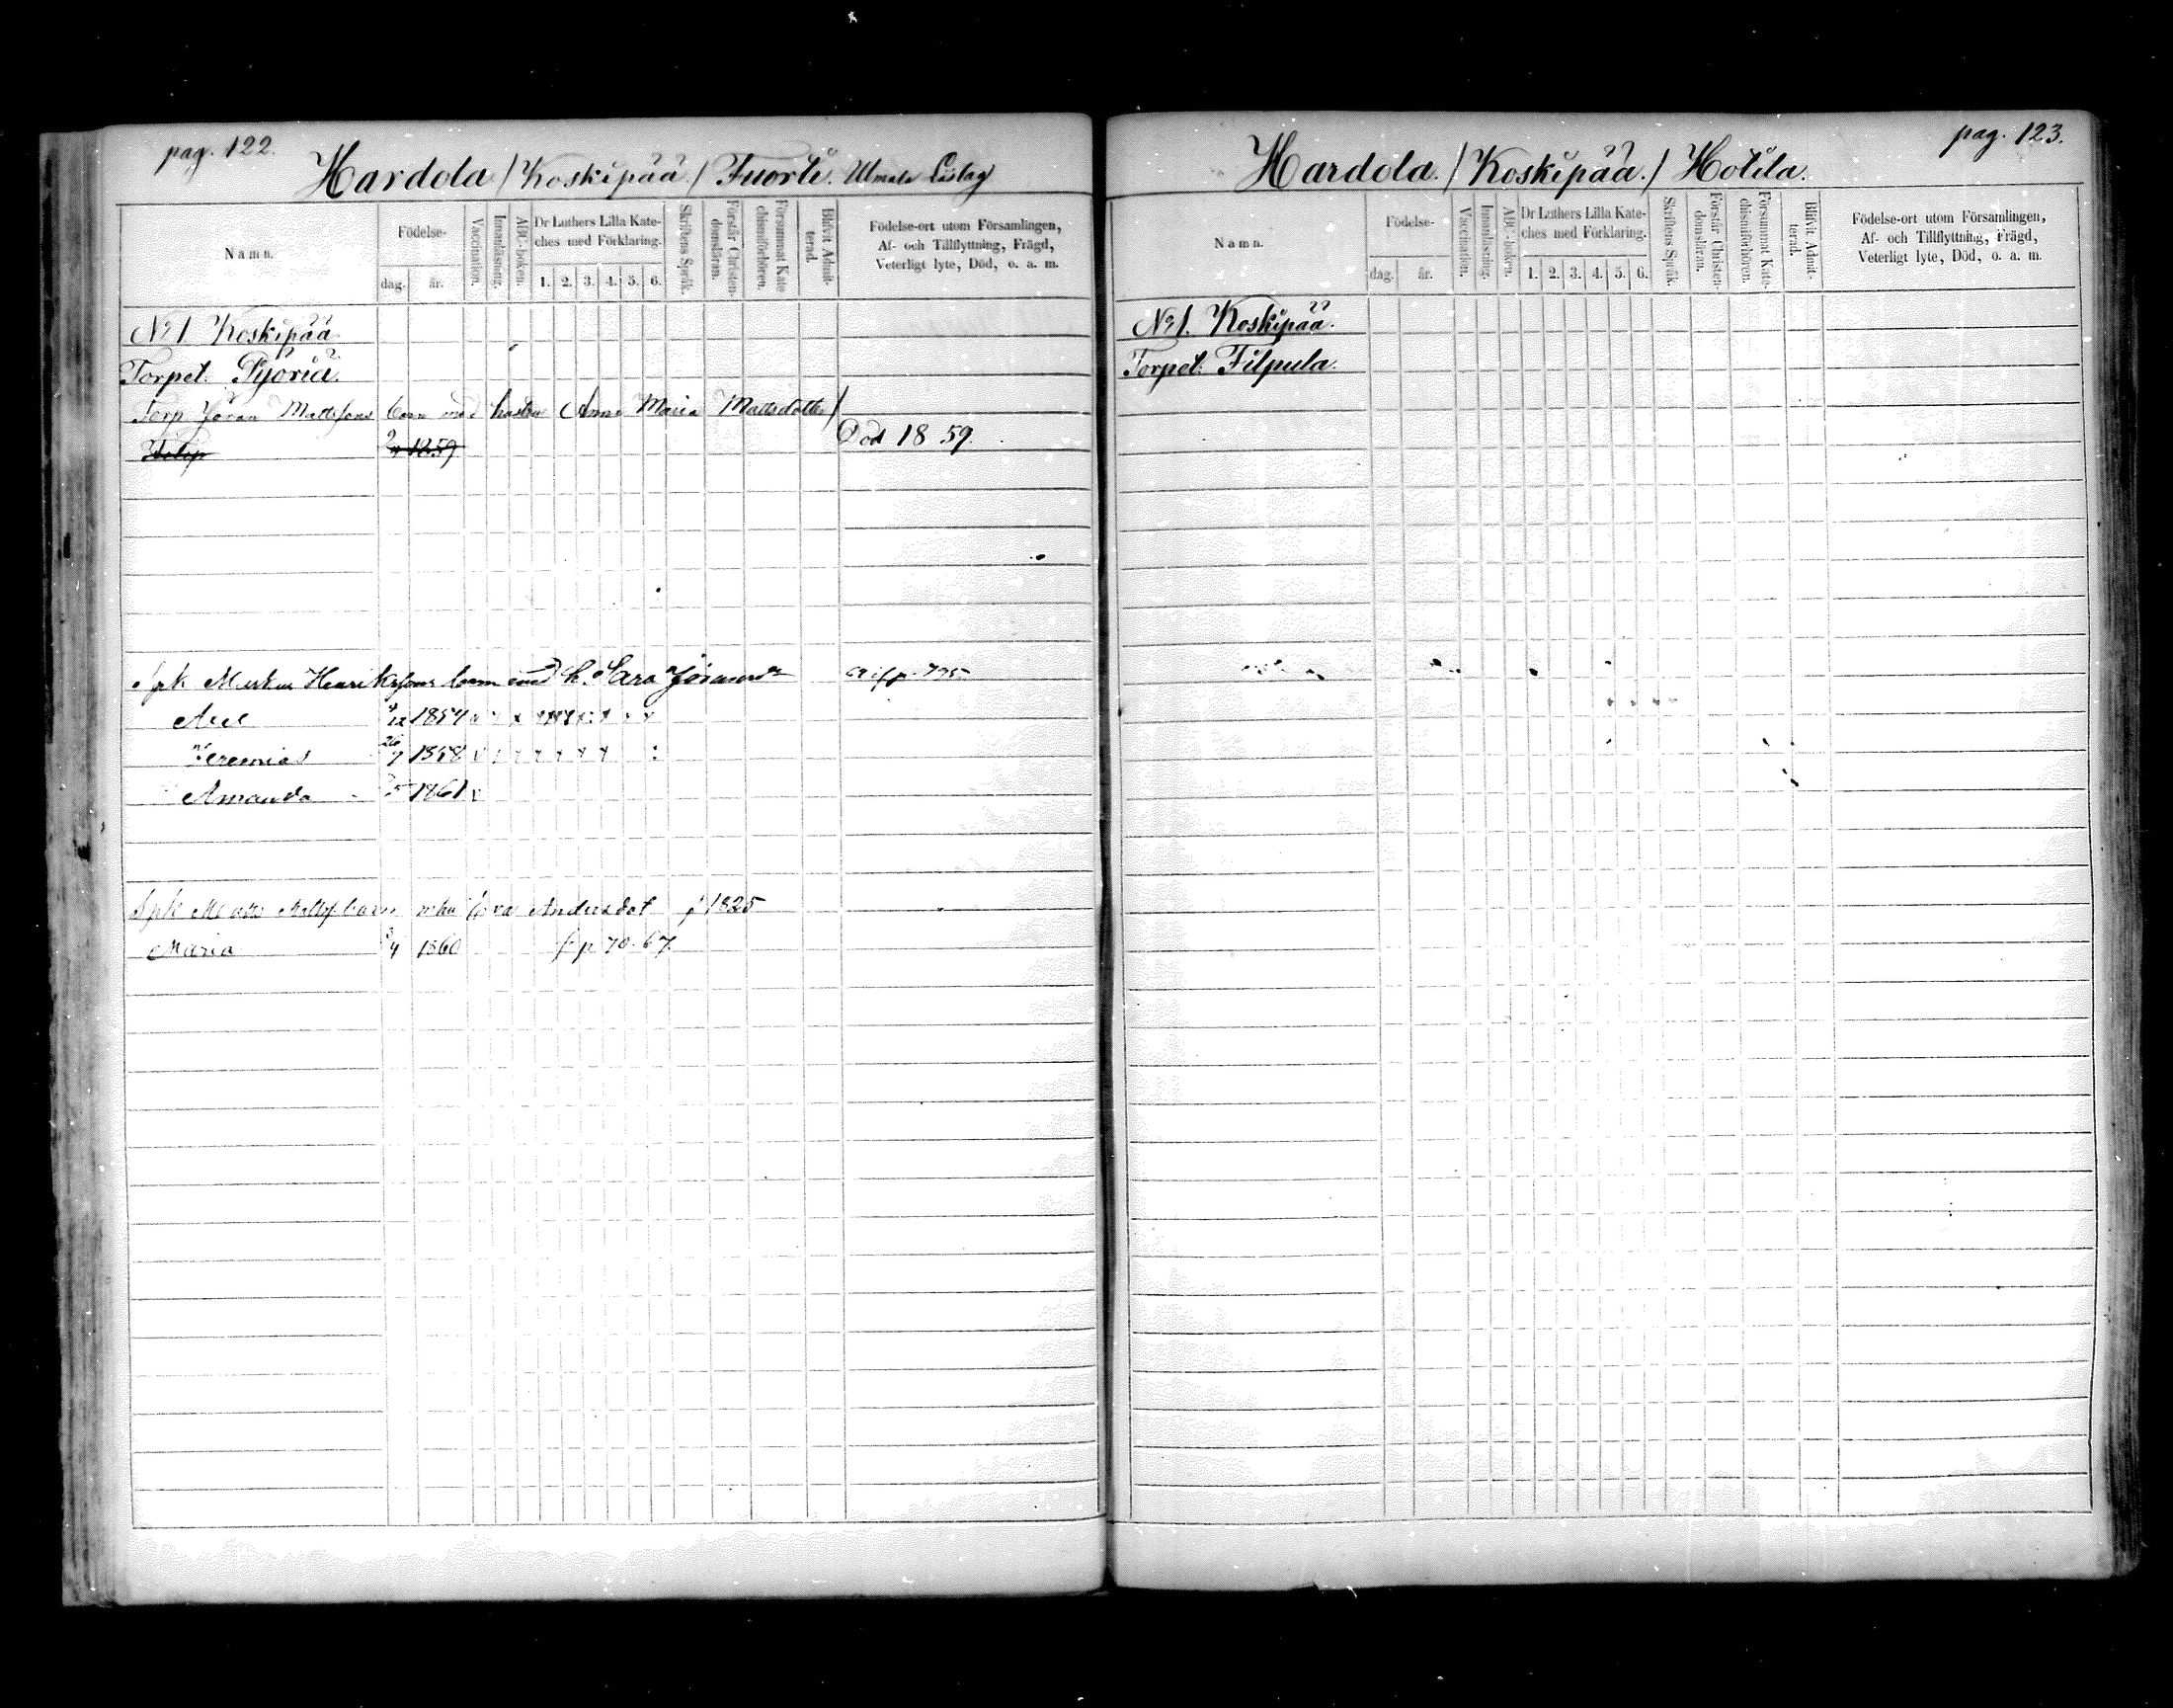 pag. 122.
Hardola /Koskipää./ Tuorti. Ulmala Läslag
Namn.
Födelse-
dag.
år.
Vaccination.
Innanläsning.
ABC-boken.
Dr Luthers Lilla Kate-
ches med Förklaring.
1. 2. 3. 4. 5. 6.
Skriftens Språk.
Förstår Christen-
domsläran.
Försummat Kate
chismiförhören.
Blifvit Admit-
terad.
Födelse-ort utom Församlingen,
Af- och Tillflyttning, Frägd,
Veterligt lyte, Död, o. a. m.
No 1 Koskipää
Torpet. Pyöriä.
Torp Jöran Mattssons barn med hustru Anna Maria Mattsdotter/
1859 Död 1859.
Spk Markus Henrikssons barn med h. Sara
12 1854
Jeremias 26/7 1858
Amanda 1861
Spk Matts barn Andersdot 1825
Maria 1860 70. 67.
pag. 123.
Hardola. /Koskipää./ Hotila.
Namn.
Födelse-
dag.
år.
Vaccination.
Innanläsning.
ABC-boken.
Dr Luthers Lilla Kate-
ches med Förklaring.
1. 2. 3. 4. 5. 6.
Skriftens Språk.
Förstår Christen-
domsläran.
Försummat Kate-
chismiförhören.
Blifvit Admit-
terad.
Födelse-ort utom Församlingen,
Af- och Tillflyttning, Frägd,
Veterligt lyte, Död, o. a. m.
No 1. Koskipää.
Torpet. Filpula.